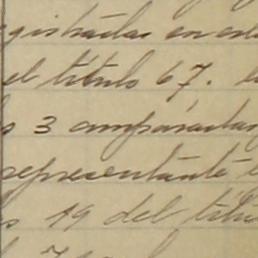 gistradas en est
el título 67.
s 3 amparadas
representante
s 19 del títu